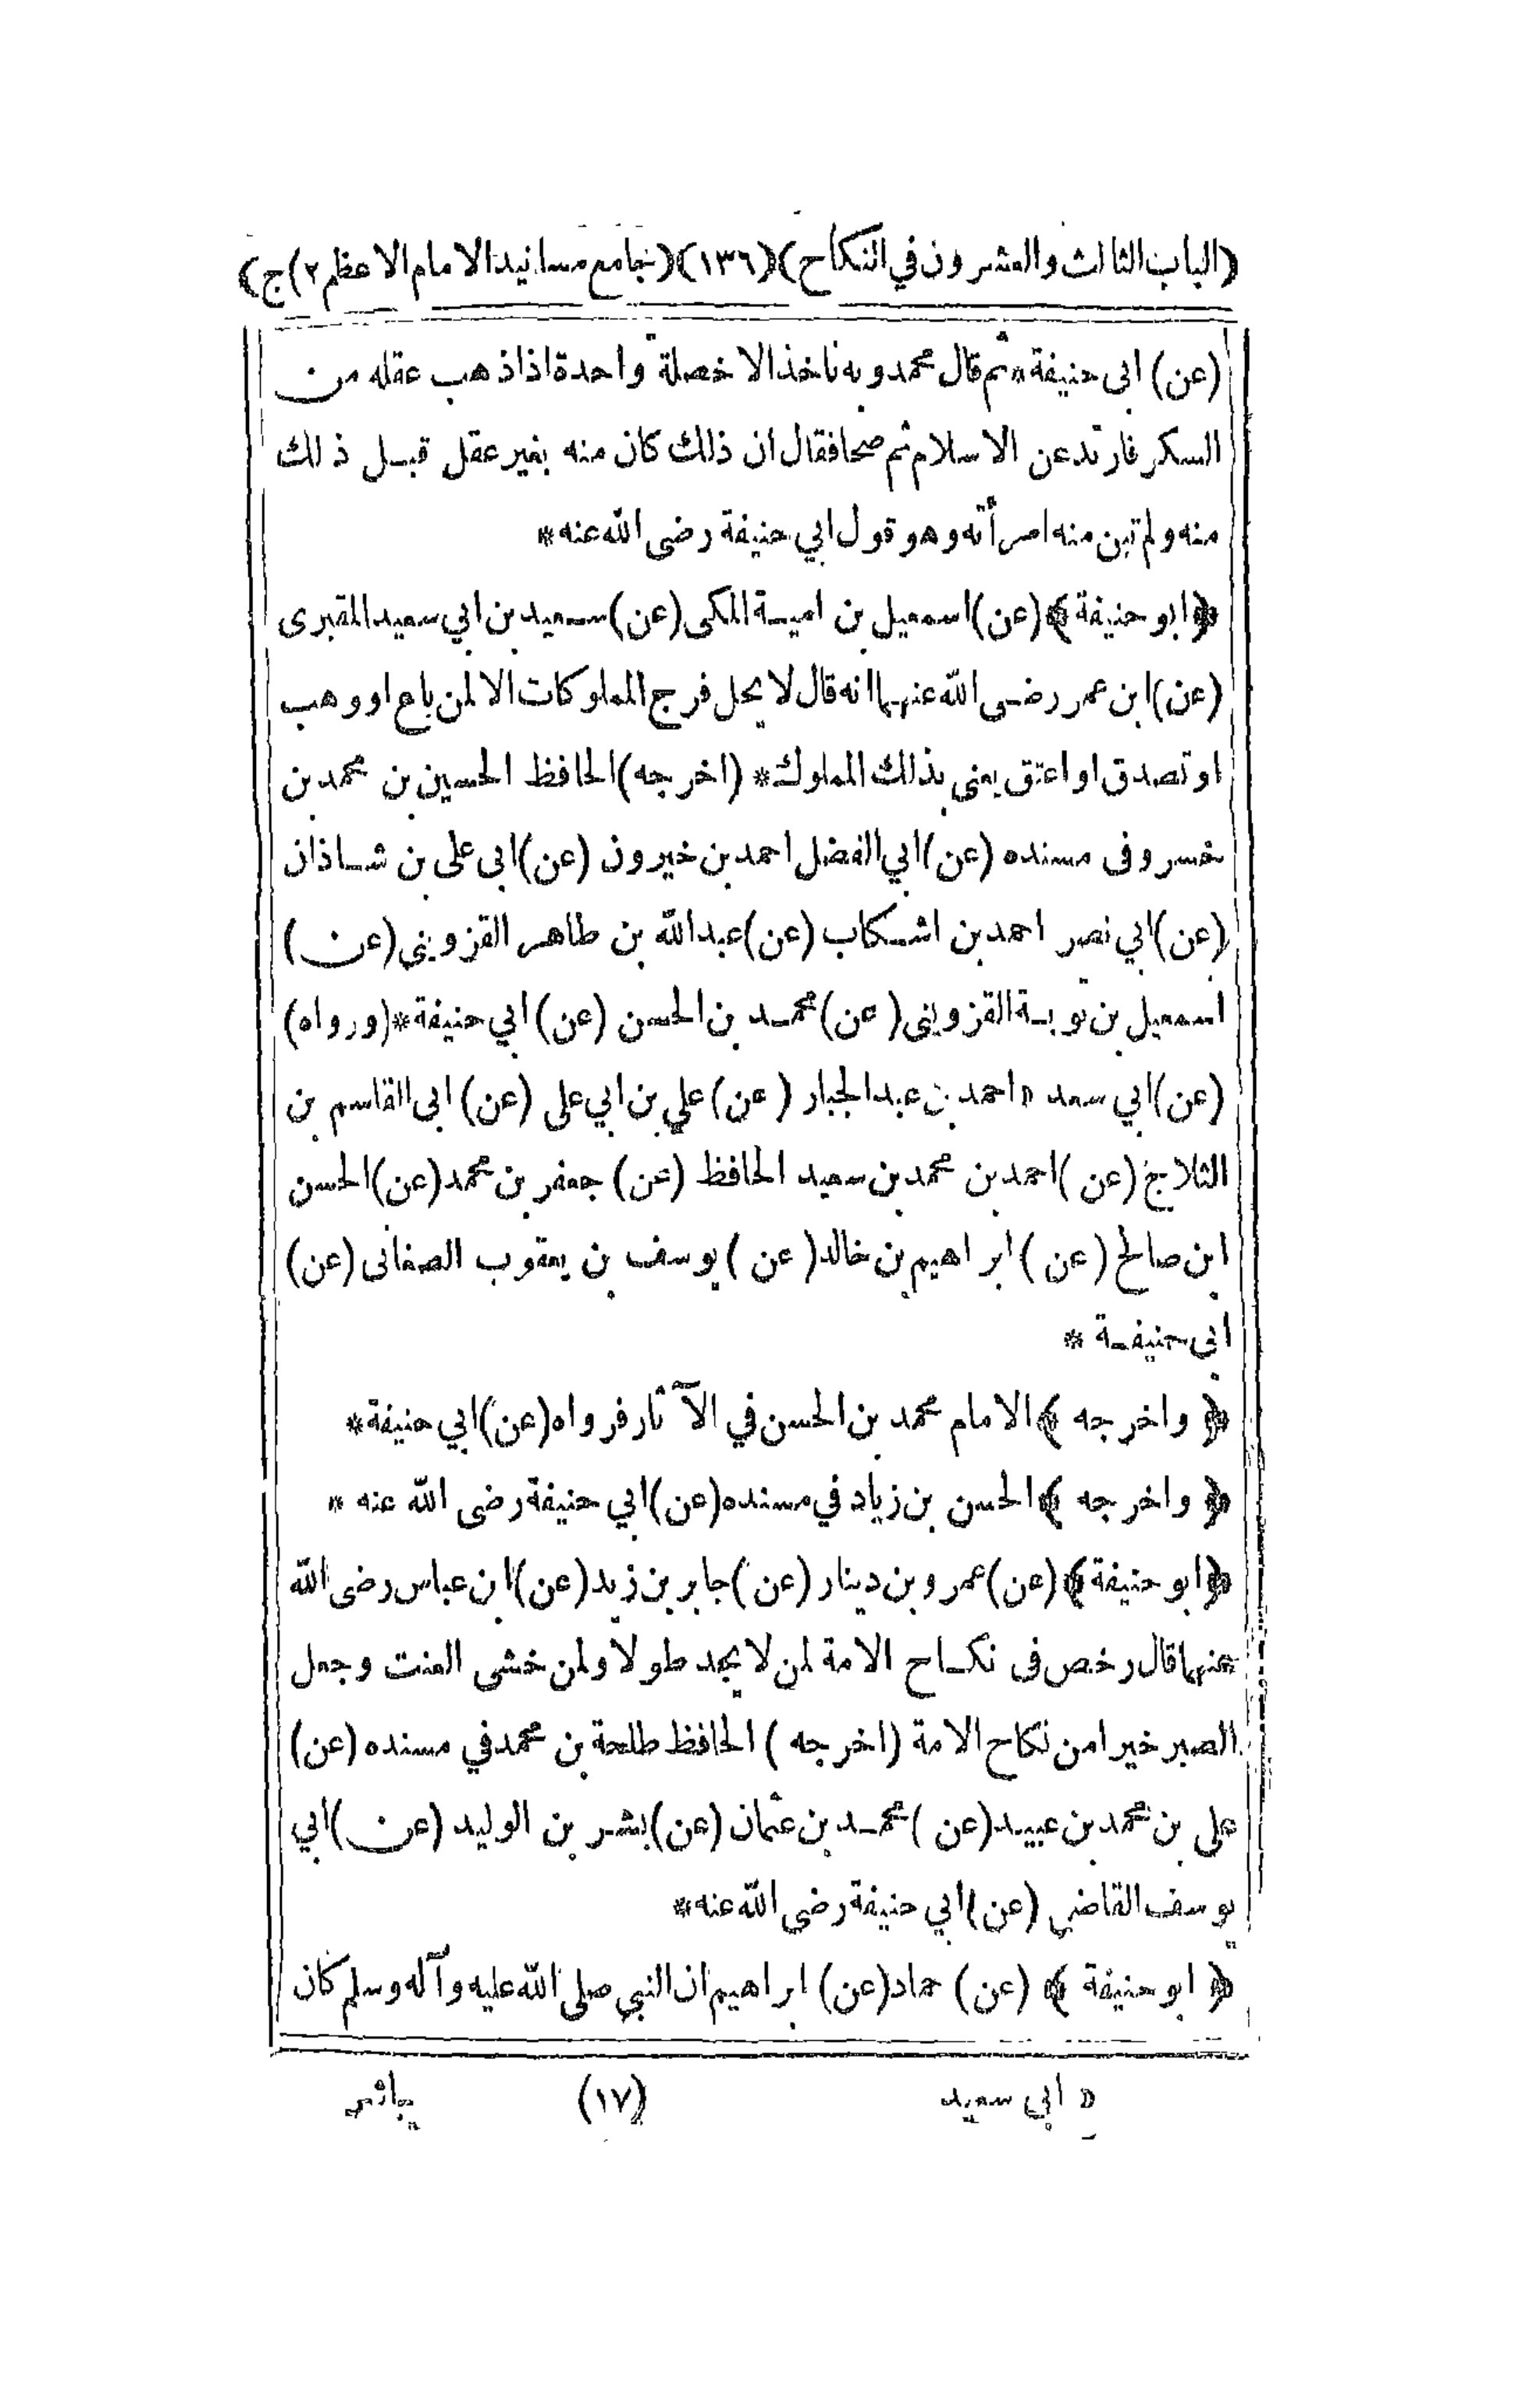 (الباب الثالث والعشرون في النكاح) (١٣٦) (جامع مسانيد الامام الاعظم ٢) ج)
(عن) ابى حنيفة * ثم قال محمد وبه ناخذ الا خصلة واحدة اذا ذهب عقله من
السكر فارتد عن الاسلام ثم صحا فقال ان ذلك كان منه بغير عقل قبل ذلك
منه ولم تبن منه امرأته وهو قول ابي حنيفة رضى الله عنه *
﴿ ابو حنيفة ﴾ (عن) اسمعيل بن امية المكى (عن) سعيد بن ابي سعيد المقبرى
(عن) ابن عمر رضى الله عنهما انه قال لا يحل فرج المملوكات الا لمن باع او وهب
او تصدق او اعتق يعنى بذلك المملوك * (اخرجه) الحافظ الحسين بن محمد بن
خسرو فى مسنده (عن) ابي الفضل احمد بن خيرون (عن) ابى على بن شاذان
(عن) ابي نصر احمد بن اشكاب (عن) عبد الله بن طاهر القزوينى (عن)
اسمعيل بن توبة القزوينى (عن) محمد بن الحسن (عن) ابي حنيفة * (ورواه)
(عن) ابي سعد ¤ احمد بن عبد الجبار (عن) علي بن ابي على (عن) ابى القاسم بن
الثلاج (عن) احمد بن محمد بن سعيد الحافظ (عن) جعفر بن محمد (عن) الحسن
ابن صالح (عن) ابراهيم بن خالد (عن) يوسف بن يعقوب الصغانى (عن)
ابى حنيفة *
﴿ واخرجه ﴾ الامام محمد بن الحسن في الآثار فرواه (عن) ابي حنيفة *
﴿ واخرجه ﴾ الحسن بن زياد في مسنده (عن) ابي حنيفة رضى الله عنه *
﴿ ابو حنيفة ﴾ (عن) عمرو بن دينار (عن) جابر بن زيد (عن) ابن عباس رضى الله
عنهما قال رخص فى نكاح الامة لمن لا يجد طولا ولمن خشى العنت وجعل
الصبر خيرا من نكاح الامة (اخرجه) الحافظ طلحة بن محمد في مسنده (عن)
على بن محمد بن عبيد (عن) محمد بن عثمان (عن) بشر بن الوليد (عن) ابي
يوسف القاضي (عن) ابي حنيفة رضى الله عنه *
﴿ ابو حنيفة ﴾ (عن) حماد (عن) ابراهيم ان النبي صلى الله عليه وآله وسلم كان
¤ ابي سعيد (١٧) يباشر